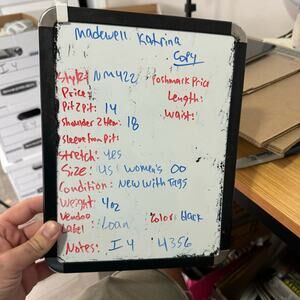 Madewell Katrina
Copy
Style: NM422 Poshmark Price
Price: Length:
Pit 2 pit: 14 Waist:
Shoulder 2 Hem: 18
Sleeve from Pit:
Stretch: yes
Size: US Women's 00
Condition: New With Tags
Weight 4oz
Vendoo Label: Loan Color: Black
Notes: I 4 4356
I 4